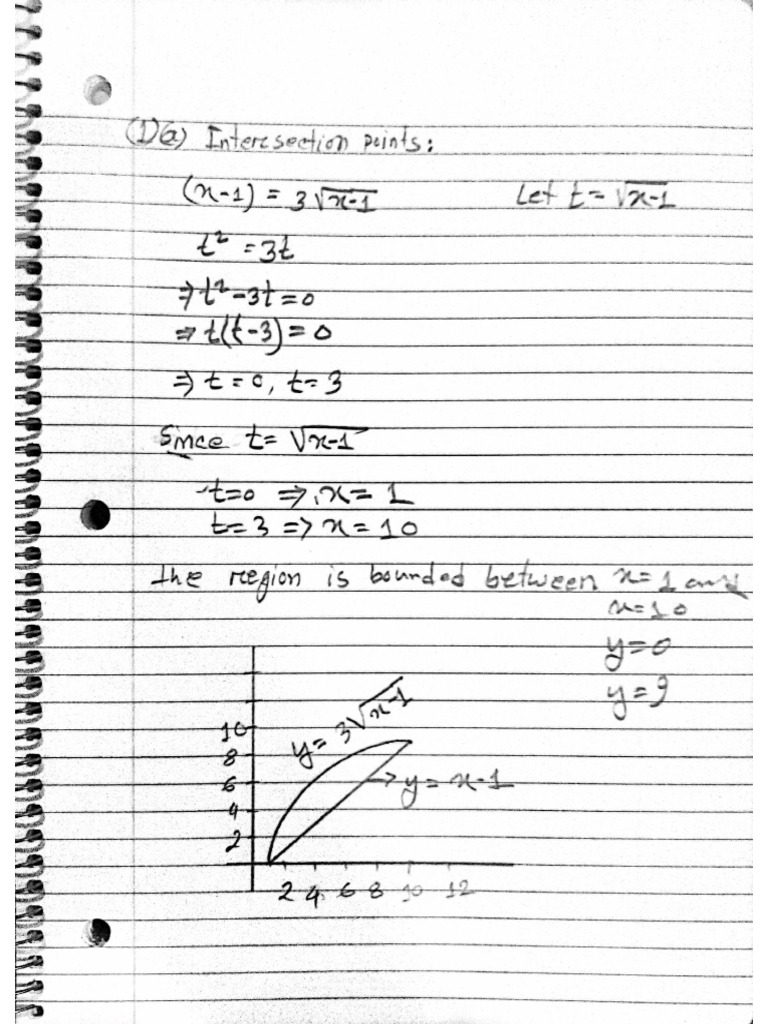 (1)(a) Intersection points:
(x-1) = 3√(x-1) Let t = √(x-1)
t² = 3t
⇒ t² - 3t = 0
⇒ t(t-3) = 0
⇒ t = 0, t = 3
Since t = √(x-1)
t=0 ⇒ x = 1
t = 3 => x = 10
The region is bounded between x = 1 and
x = 10
y = 0
y = 9
y = 3√(x-1)
10
8
6 → y = x-1
4
2
2 4 6 8 10 12